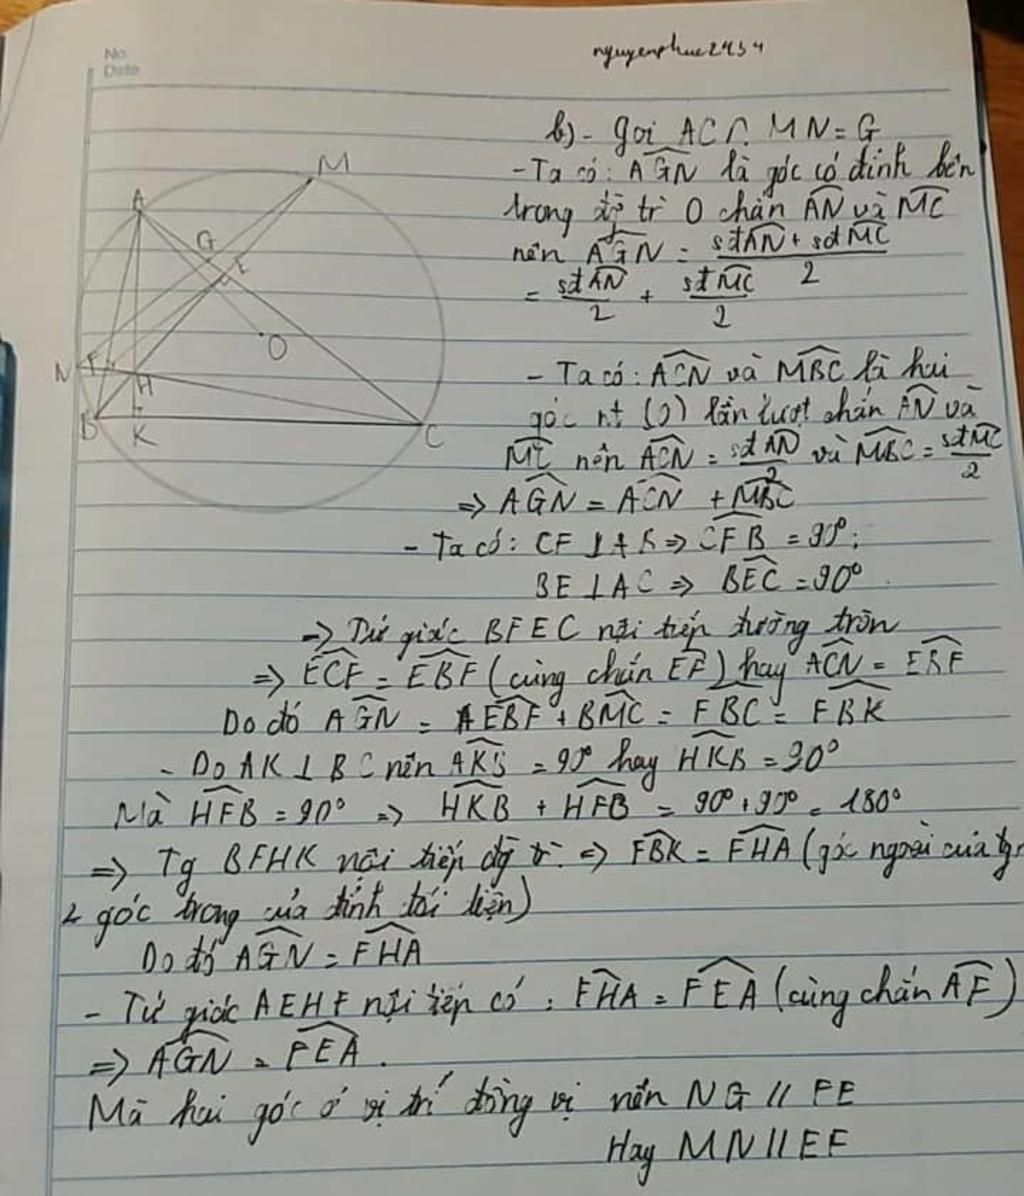 No.
Date
nguyenphuc2434
b) - gọi AC ∩ MN = G
- Ta có: AGN là góc có đỉnh bên
trong đg tr O chắn AN và MC
nên AGN = sđAN + sđMC / 2
= sđAN / 2 + sđMC / 2
- Ta có: ACN và MBC là hai
góc nt (O) lần lượt chắn AN và
MC nên ACN = sđAN / 2 và MBC = sđMC / 2
=> AGN = ACN + MBC
- Ta có: CF ⊥ AB => CFB = 90°;
BE ⊥ AC => BEC = 90°
=> Tứ giác BFEC nội tiếp đường tròn
=> ECF = EBF (cùng chắn EF) hay ACN = EBF
Do đó AGN = EBF + BMC = FBC = FBK
- Do AK ⊥ BC nên AKB = 90° hay HKB = 90°
Mà HFB = 90° => HKB + HFB = 90° + 90° = 180°
=> Tg BFHK nội tiếp đg tr => FBK = FHA (góc ngoài của tg
góc trong của đỉnh đối diện)
Do đó AGN = FHA
- Tứ giác AEHF nội tiếp có: FHA = FEA (cùng chắn AF)
=> AGN = FEA.
Mà hai góc ở vị trí đồng vị nên NG // FE
Hay MN // EF
A
M
G
E
O
N
F
H
B
K
C